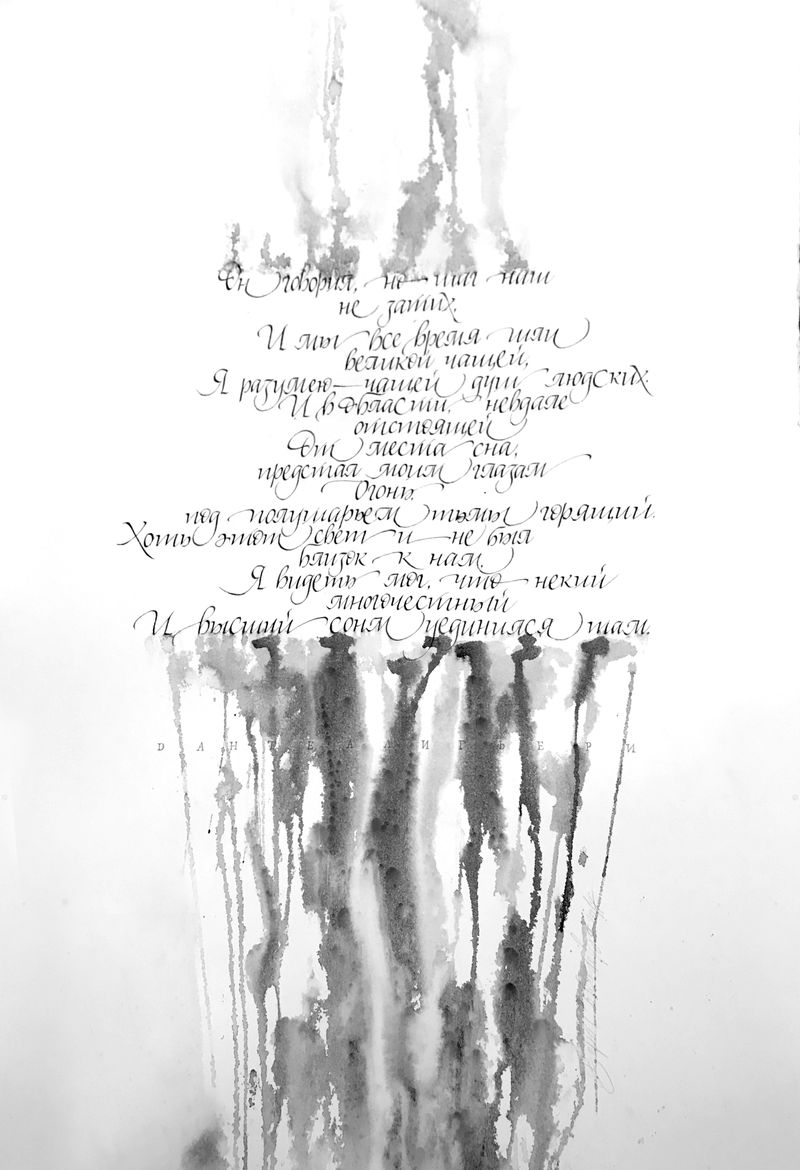 Он говорил, но шаг наш
не затих,
И мы все время шли
великой чащей,
Я разумею — чащей душ людских.
И в области, невдале
отстоящей
От места сна,
предстал моим глазам
Огонь,
под полушарьем тьмы горящий.
Хоть этот свет и не был
близок к нам,
Я видеть мог, что некий
многочестный
И высший сонм уединился там.
ДАНТЕ АЛИГЬЕРИ